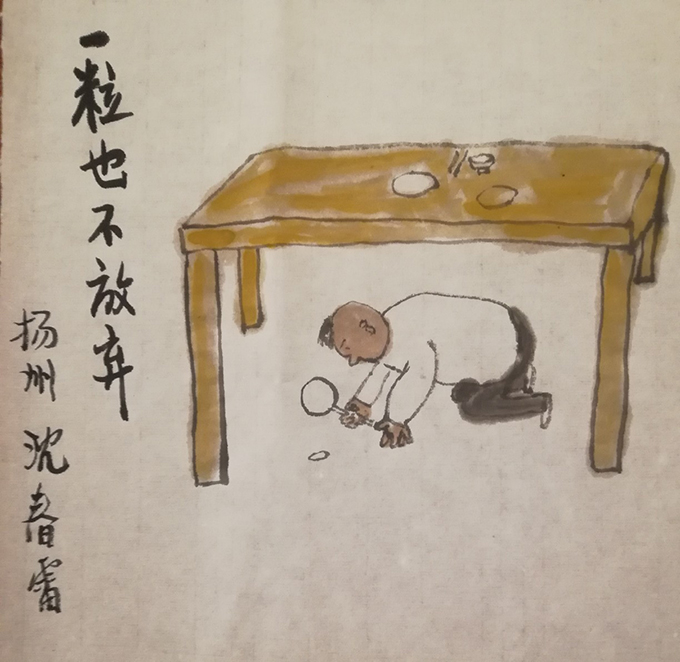 一粒也不放弃
扬州 沈春雷